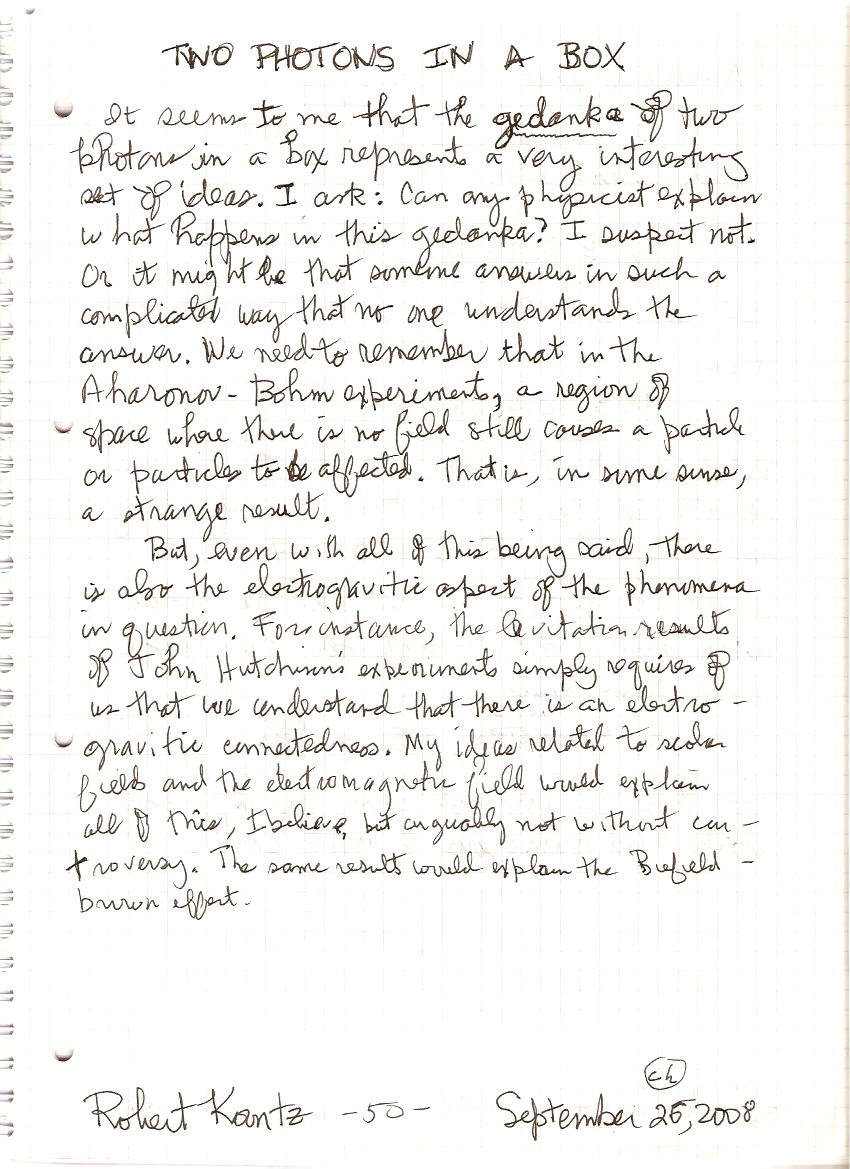 TWO PHOTONS IN A BOX
It seems to me that the gedanke of two
photons in a box represents a very interesting
set of ideas. I ask: Can any physicist explain
what happens in this gedanka? I suspect not.
Or it might be that someone answers in such a
complicated way that no one understands the
answer. We need to remember that in the
Aharonov-Bohm experiments, a region of
space where there is no field still causes a particle
or particles to be affected. That is, in some sense,
a strange result.
But, even with all of this being said, there
is also the electrogravitic aspect of the phenomena
in question. For instance, the levitation results
of John Hutchison's experiments simply requires of
us that we understand that there is an electro-
gravitic connectedness. My ideas related to scalar
fields and the electromagnetic field would explain
all of this, I believe, but arguably not without con-
troversy. The same results would explain the Biefield-
brown effect.
ch
Robert Kantz -50- September 25, 2008